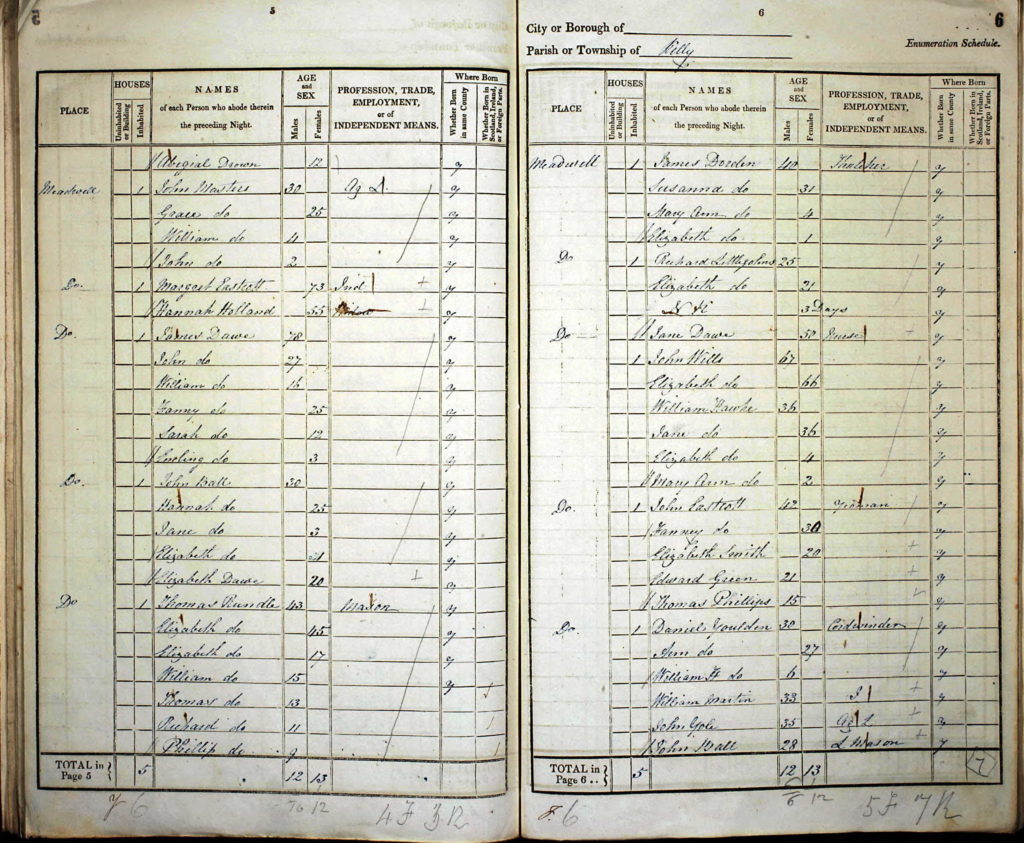 5
PLACE HOUSES Uninhabited or Building Inhabited NAMES of each Person who abode therein the preceding Night. AGE and SEX Males Females PROFESSION, TRADE, EMPLOYMENT, or of INDEPENDENT MEANS. Where Born Whether Born in same County Whether Born in Scotland, Ireland, or Foreign Parts.
Abegial Down 12 y
Meadwell 1 John Masters 30 Ag L y
Grace do 25 y
William do 4 y
John do 2 y
Do 1 Margget Eastcott 73 Ind y
Hannah Holland 55 y
Do 1 James Dawe 78 y
John do 27 y
William do 16 y
Fanny do 25 y
Sarah do 12 y
do 3 y
Do. 1 John Ball 30 y
Hannah do 25 y
Jane do 3 y
Elizabeth do 1 y
Elizabeth Dawe 20 y
Do 1 Thomas Rundle 43 Mason y
Elizabeth do 45 y
Elizabeth do 17 y
William do 15 y
Thomas do 13
Richard do 11
Phillip do 9
TOTAL in Page 5 } 5 12 13
6 12 4F 3R
6
6
City or Borough of
Parish or Township of Kelly
Enumeration Schedule.
PLACE HOUSES Uninhabited or Building Inhabited NAMES of each Person who abode therein the preceding Night. AGE and SEX Males Females PROFESSION, TRADE, EMPLOYMENT, or of INDEPENDENT MEANS. Where Born Whether Born in same County Whether Born in Scotland, Ireland, or Foreign Parts.
Meadwell 1 James Dowden 40 y
Susanna do 31 y
Mary Ann do 4 y
Elizabeth do 1 y
Do 1 Richard Littlejohns 25 y
Elizabeth do 21 y
N K 3 Days y
Do Jane Dawe 50 Nurse y
1 John Wills 67 y
Elizabeth do 66 y
William Hawke 36 y
Jane do 36 y
Elizabeth do 4 y
Mary Ann do 2 y
Do. 1 John Eastcott 42 Yeoman y
Fanney do 30 y
Elizabeth Smith 20 y
Edward Green 21 y
Thomas Phillips 15 y
Do. 1 Daniel Youlden 30 Cordwinder y
Ann do 27 y
William H do 6 y
William Martin 33 J y
John Yole 35 Ag L y
John Ball 28 L Mason y
TOTAL in Page 6 .. } 5 12 13 7
6 12 5F 7R